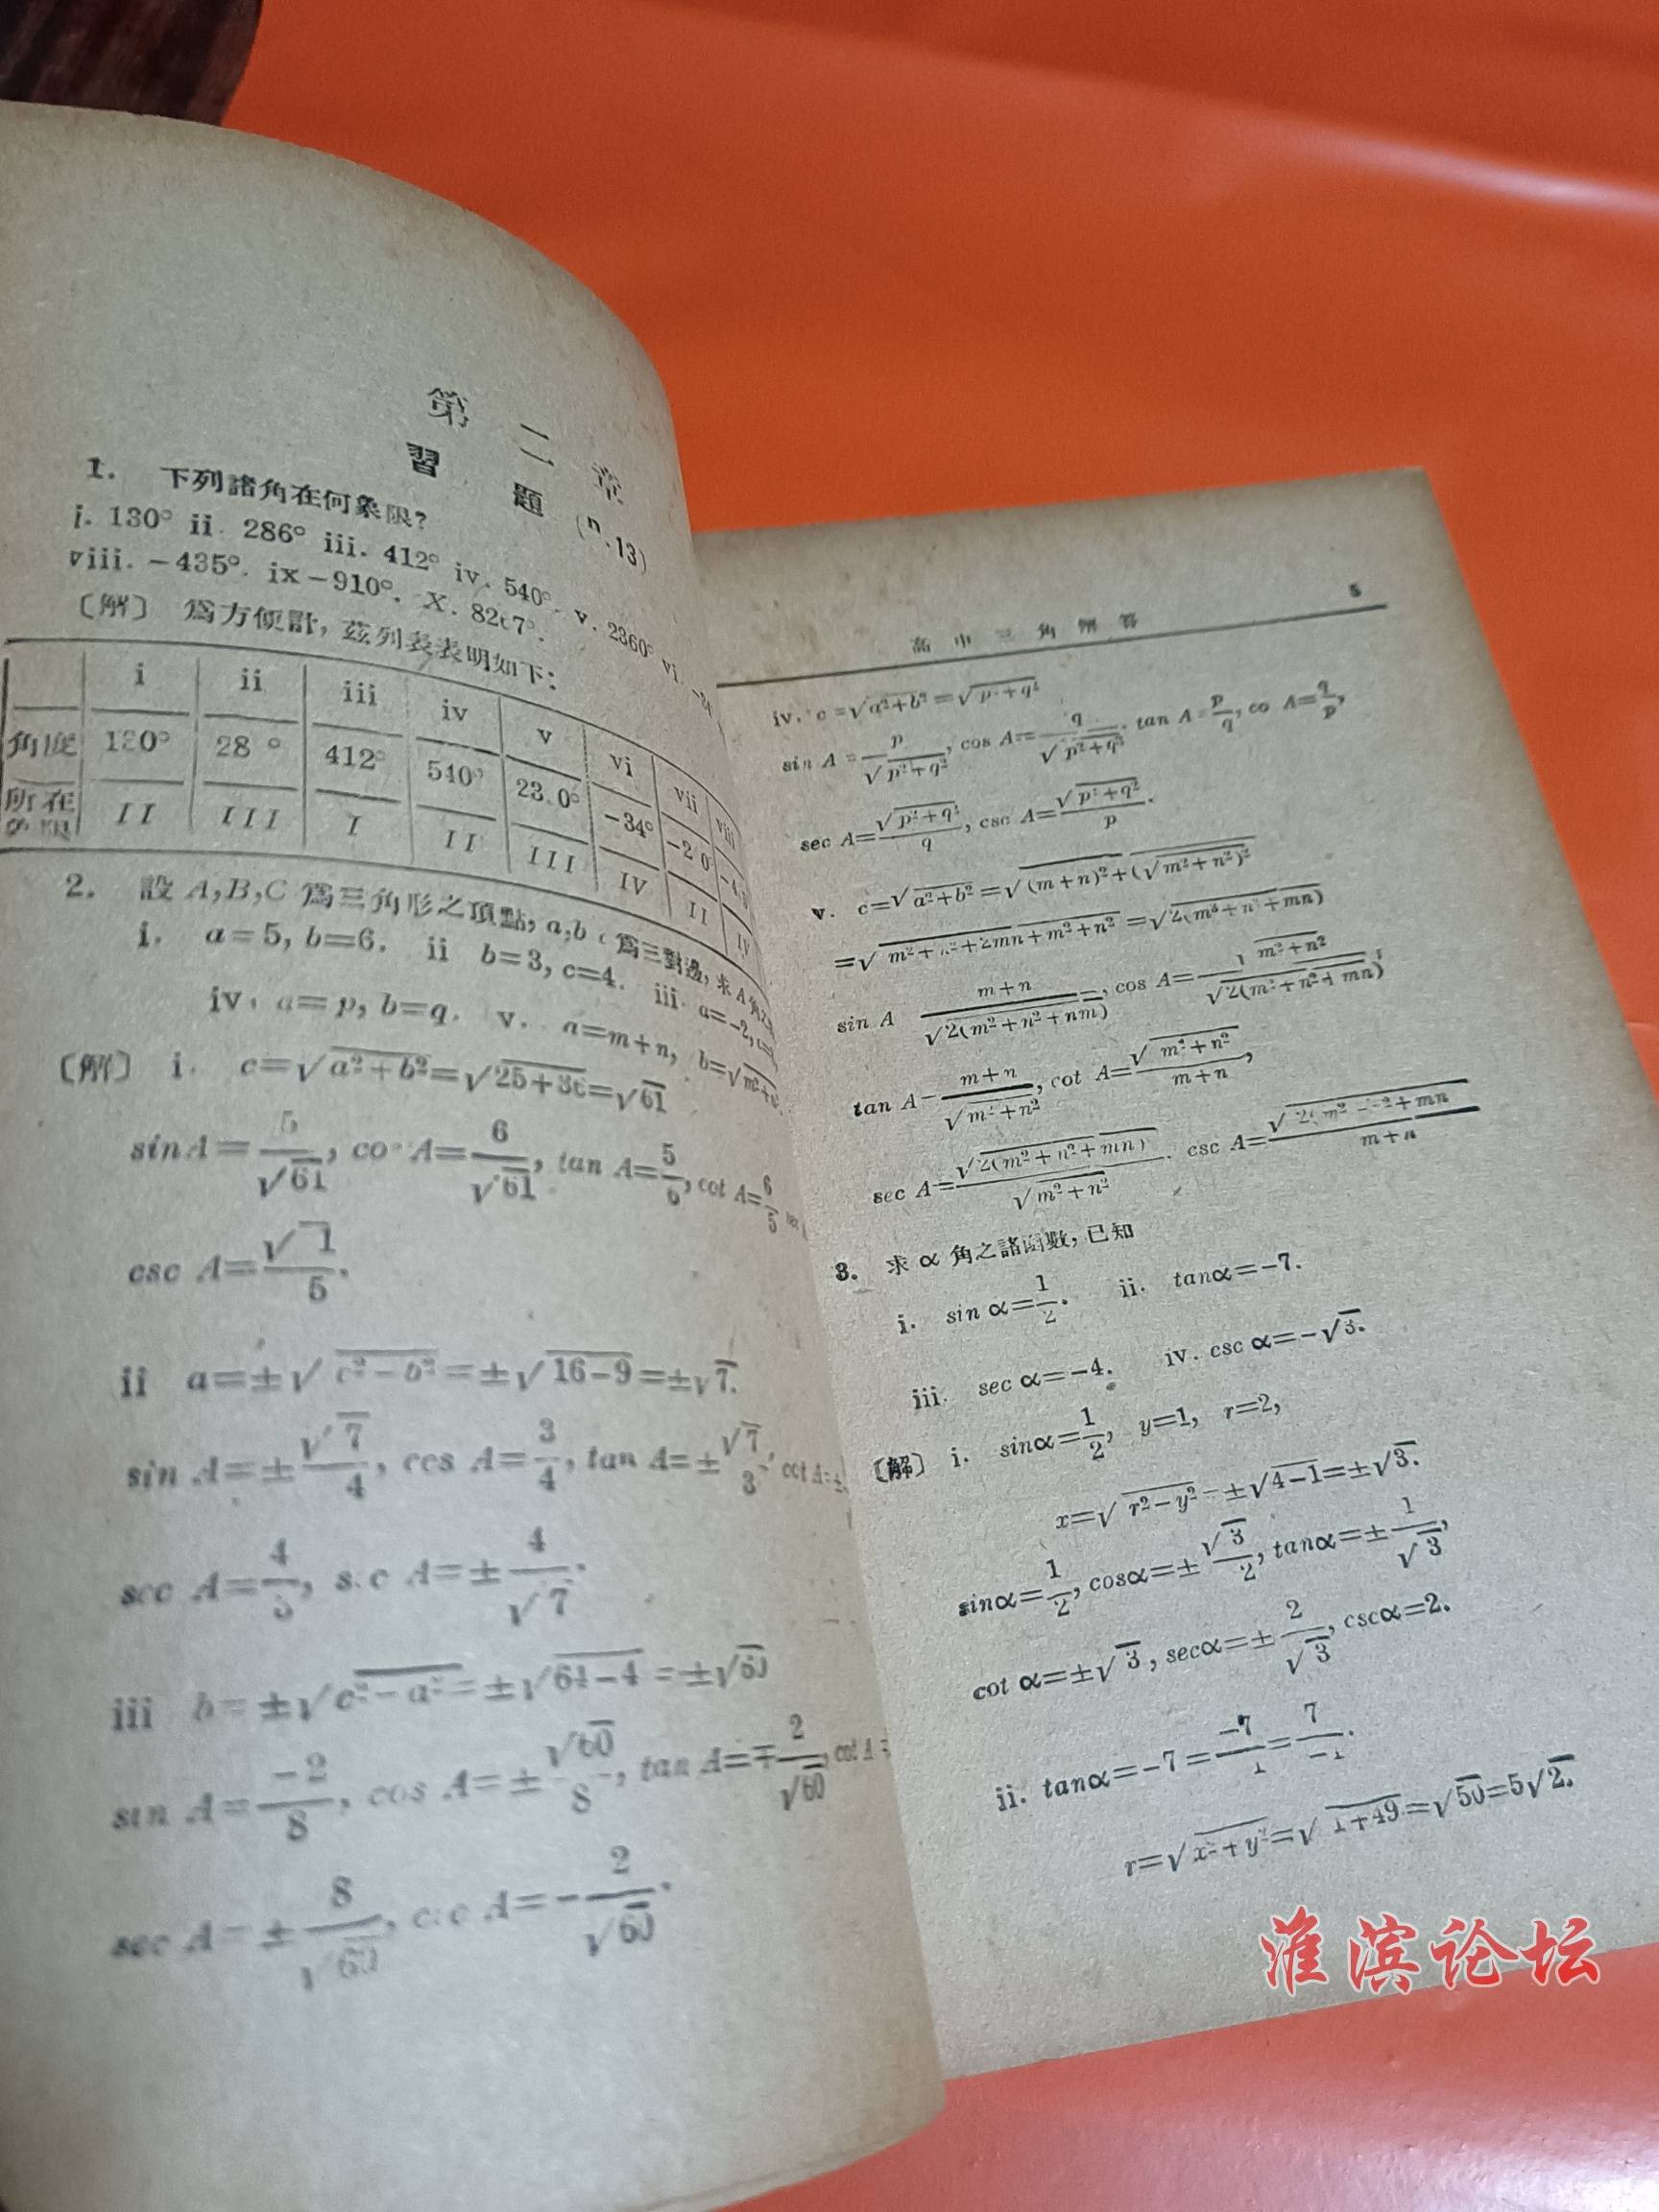 第二章
習題 (n.13)
1. 下列諸角在何象限?
i. 130° ii. 286° iii. 412° iv. 540°. v. 2360° vi.
viii. -435°. ix -910°. X.
〔解〕 爲方便計, 茲列表表明如下:
i ii iii iv v vi vii viii
角度 130° 28 ° 412° 540° 23.0° -34° -2 0
所在象限 II III I II III IV II IV
2. 設 A,B,C 爲三角形之頂點, a,b c 爲三對邊, 求 A 角之
i. a=5, b=6. ii b=3, c=4. iii. a=-2,
iv. a=p, b=q. v. a=m+n, b=√m²+n
〔解〕 i. c=√a²+b²=√25+36=√61
sinA=5/√61, co A=6/√61, tan A=5/6, cot A=6/5
csc A=√ 1/5.
ii a=±√c²-b²=±√16-9=±√7.
sin A=±√7/4, ccs A=3/4, tan A=±√7/3, cct A=±
sec A=4/3, s.c A=±4/√7.
iii b=±√c²-a²=±√64-4=±√60
sin A=-2/8, cos A=±√60/8, tan A=∓2/√60, cot A=
sec A=±8/√60, c:c A=-2/√60.
高中三角解答 5
iv. c=√a²+b²=√p²+q²
sin A=p/√p²+q², cos A=q/√p²+q², tan A=p/q, co A=q/p,
sec A=√p²+q²/q, csc A=√p²+q²/p.
v. c=√a²+b²=√(m+n)²+(√m²+n²)²
=√m²+n²+2mn+m²+n²=√2(m²+n²+mn)
sin A m+n/√2(m²+n²+nm)=, cos A=√m²+n²/√2(m²+n²+mn),
tan A=m+n/√m²+n², cot A=√m²+n²/m+n,
sec A=√2(m²+n²+mn)/√m²+n². csc A=√2(m²+n²+mn/m+n
3. 求 α 角之諸函數, 已知
i. sin α=1/2. ii. tanα=-7.
iii. sec α=-4. iv. csc α=-√3.
〔解〕 i. sinα=1/2, y=1, r=2,
x=√r²-y²=±√4-1=±√3.
sinα=1/2, cosα=±√3/2, tanα=±1/√3,
cot α=±√3, secα=±2/√3, cscα=2.
ii. tanα=-7=-7/1=7/-1.
r=√x²+y²=√1+49=√50=5√2.
淮滨论坛